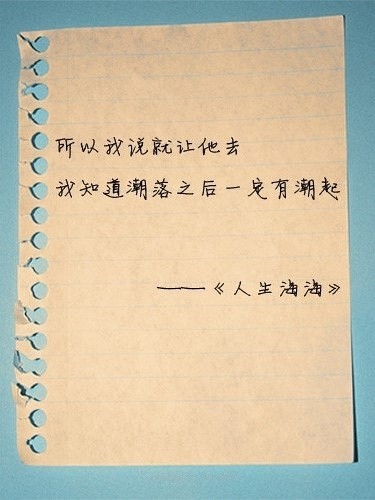 所以我说就让他去
我知道潮落之后一定有潮起
——《人生海海》